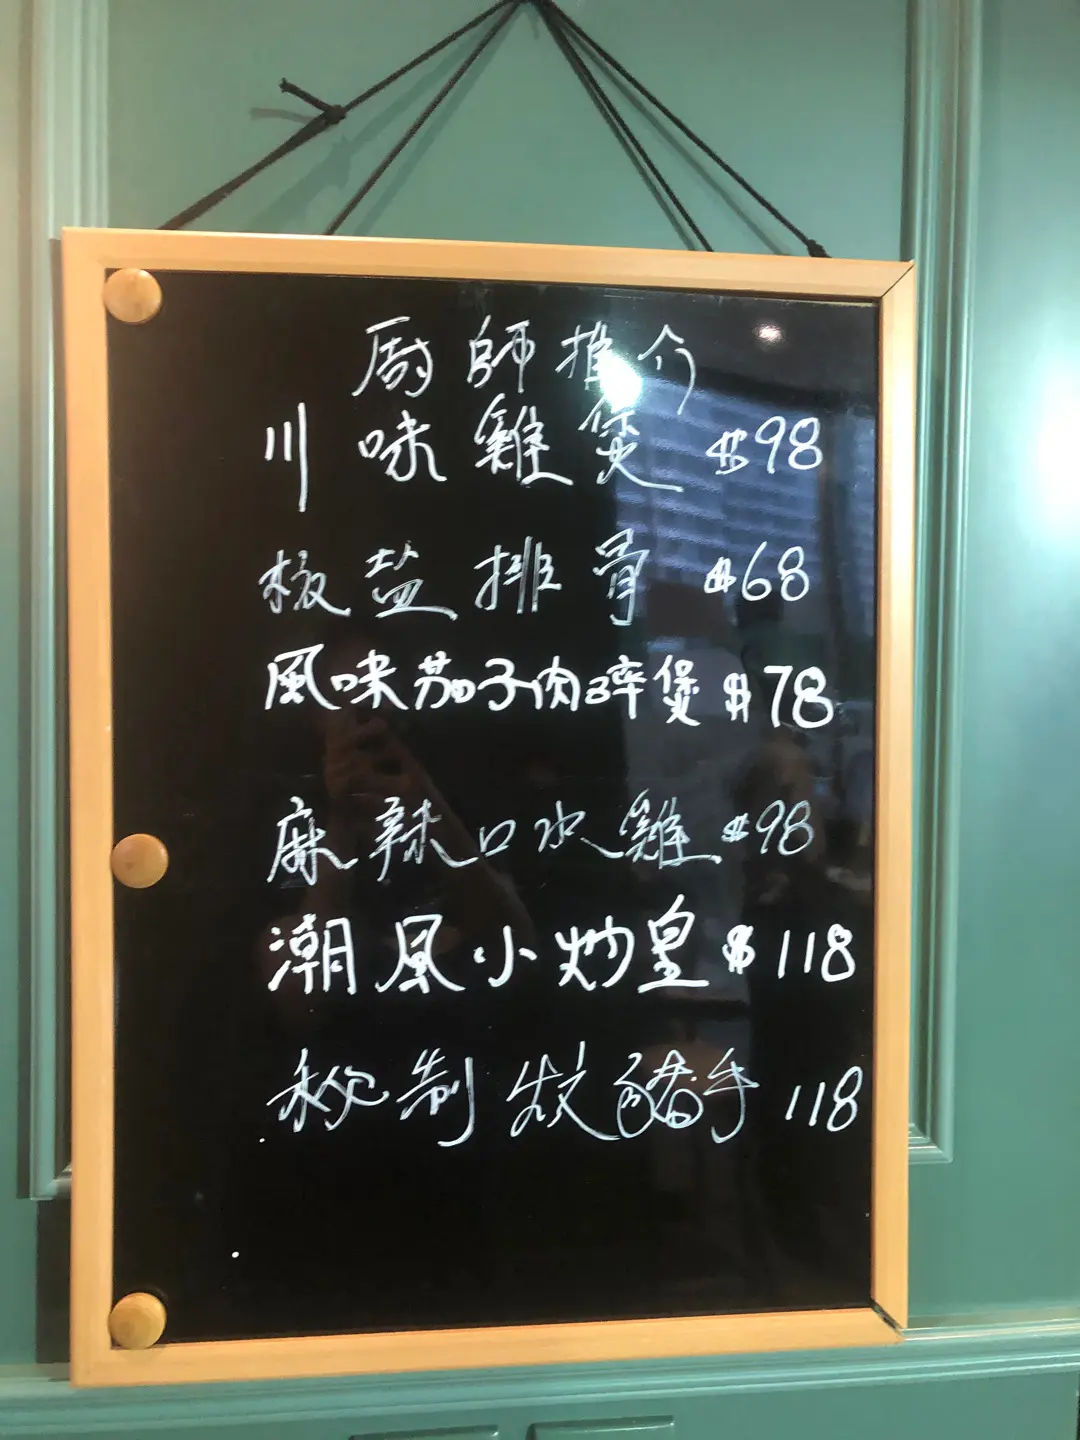 厨師推介
川味雞煲 $98
板盐排骨 $68
風味茄子肉碎煲 $78
麻辣口水雞 $98
潮風小炒皇 $118
秘制炆豬手 118